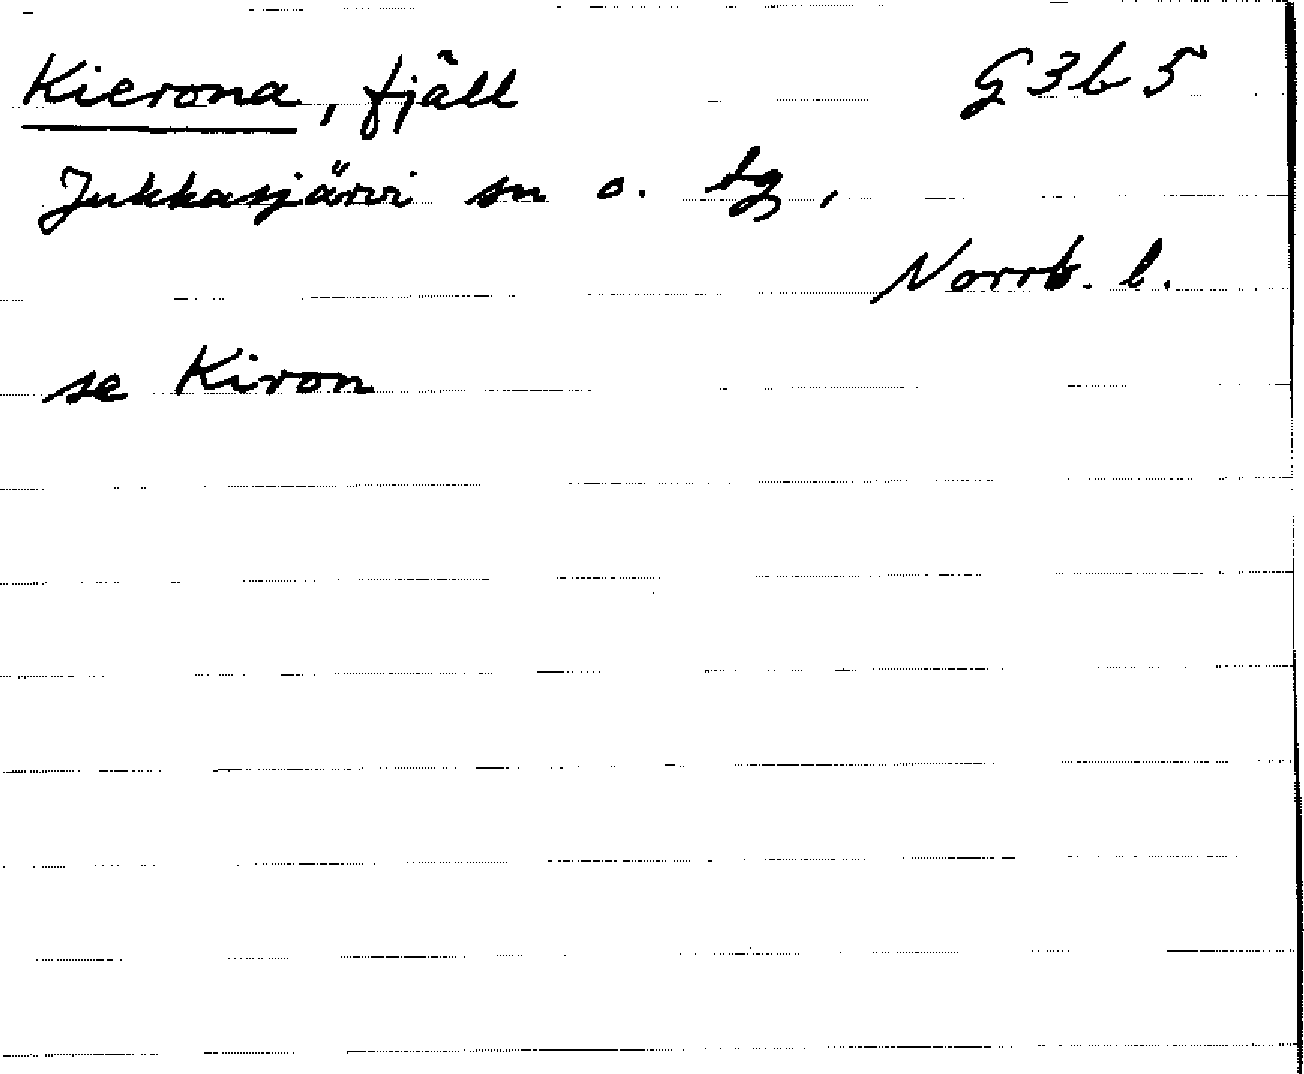 Kierona, fjäll G3b5
Jukkasjärvi sn o. tg,
Norrb. l.
se Kiron